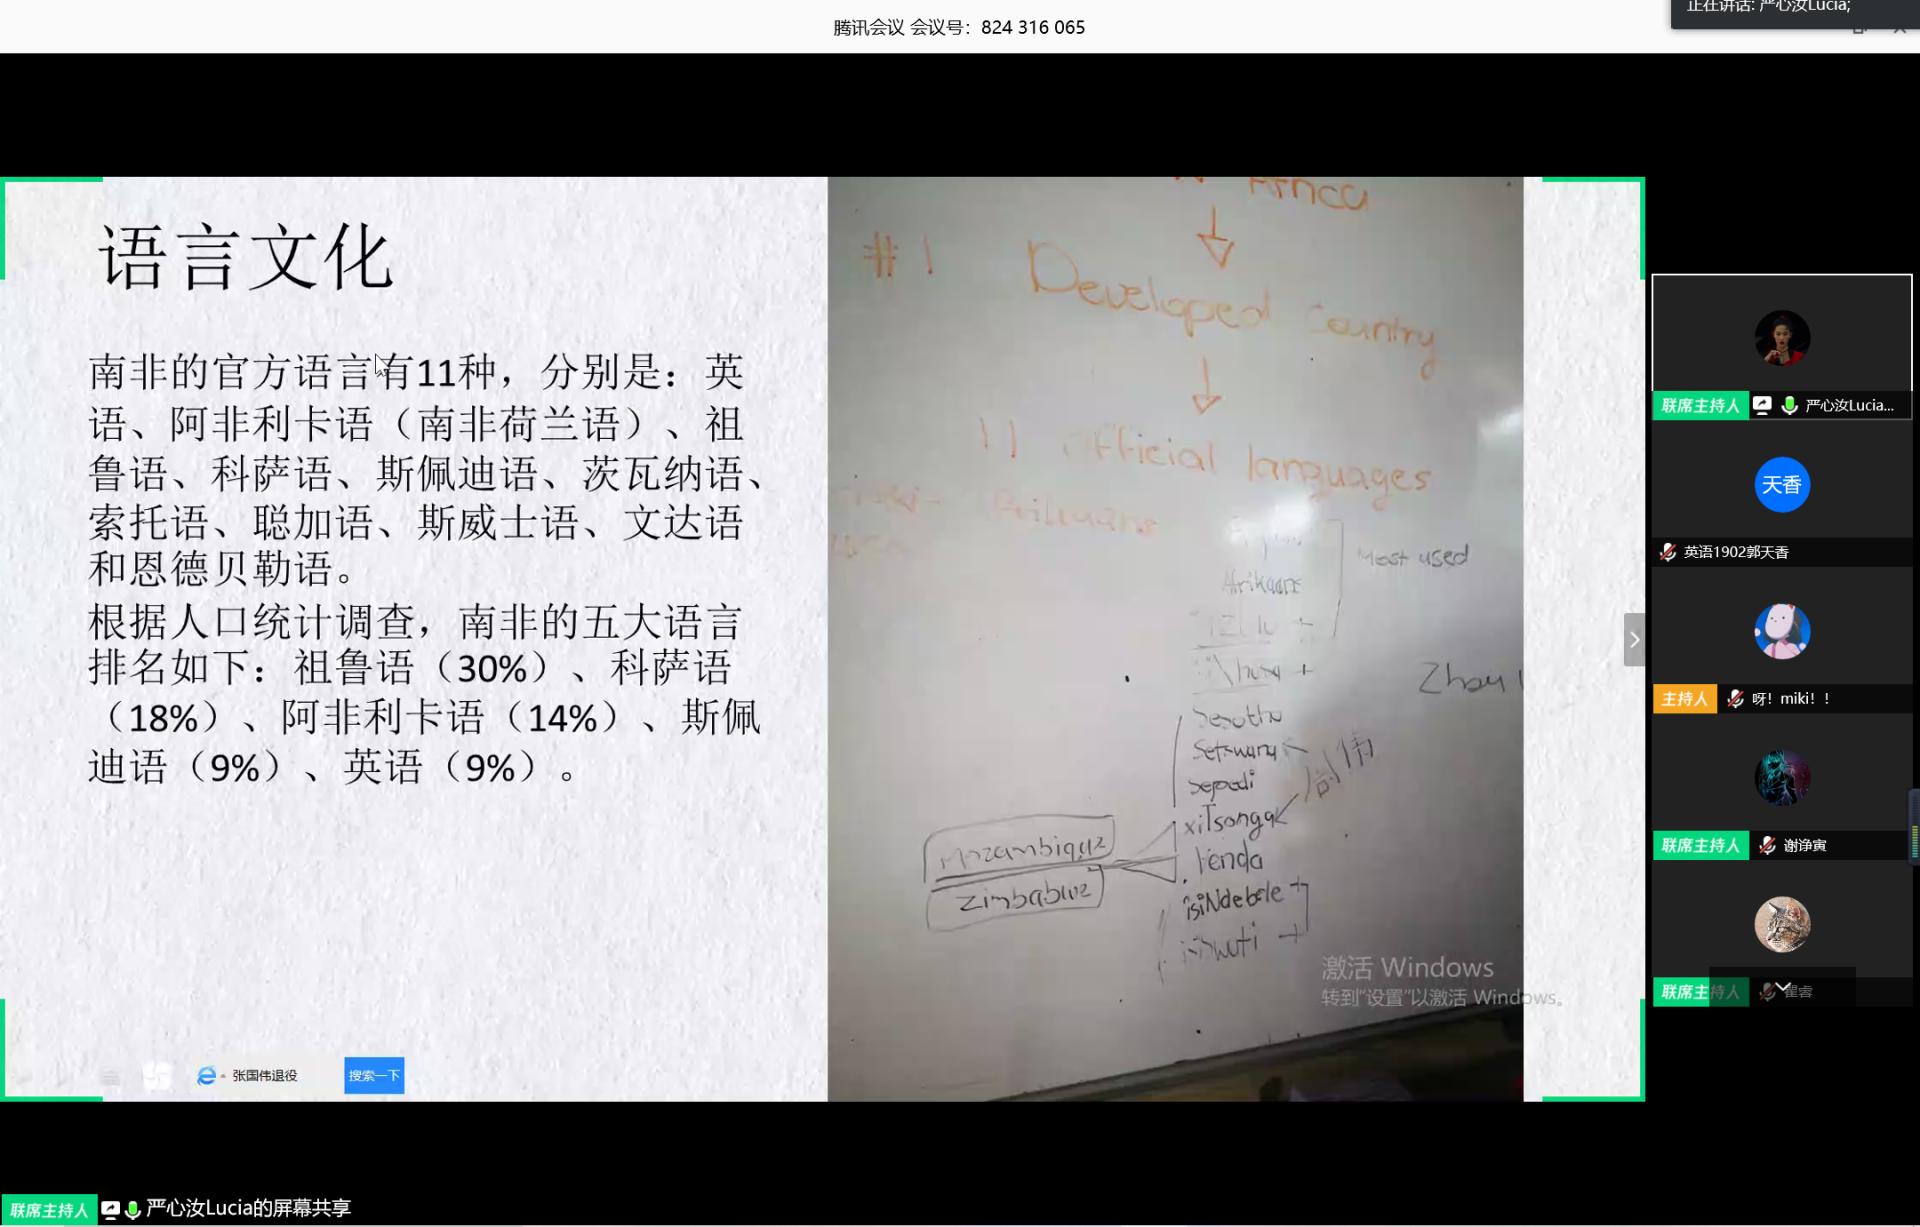 腾讯会议 会议号：824 316 065
正在讲话: 严心汝Lucia;
语言文化
南非的官方语言有11种，分别是：英
语、阿非利卡语（南非荷兰语）、祖
鲁语、科萨语、斯佩迪语、茨瓦纳语、
索托语、聪加语、斯威士语、文达语
和恩德贝勒语。
根据人口统计调查，南非的五大语言
排名如下：祖鲁语（30%）、科萨语
（18%）、阿非利卡语（14%）、斯佩
迪语（9%）、英语（9%）。
张国伟退役
搜索一下
Africa
#1 Developed Country
11 official languages
Most used
Afrikaans
Sesotho
Setswana
Sepedi
xiTsonga
Venda
isiNdebele
Mozambique
Zimbabwe
激活 Windows
转到“设置”以激活 Windows。
联席主持人 严心汝Lucia...
天香
英语1902郭天香
主持人 呀！miki！！
联席主持人 谢诤寅
联席主持人 瞿睿
联席主持人 严心汝Lucia的屏幕共享